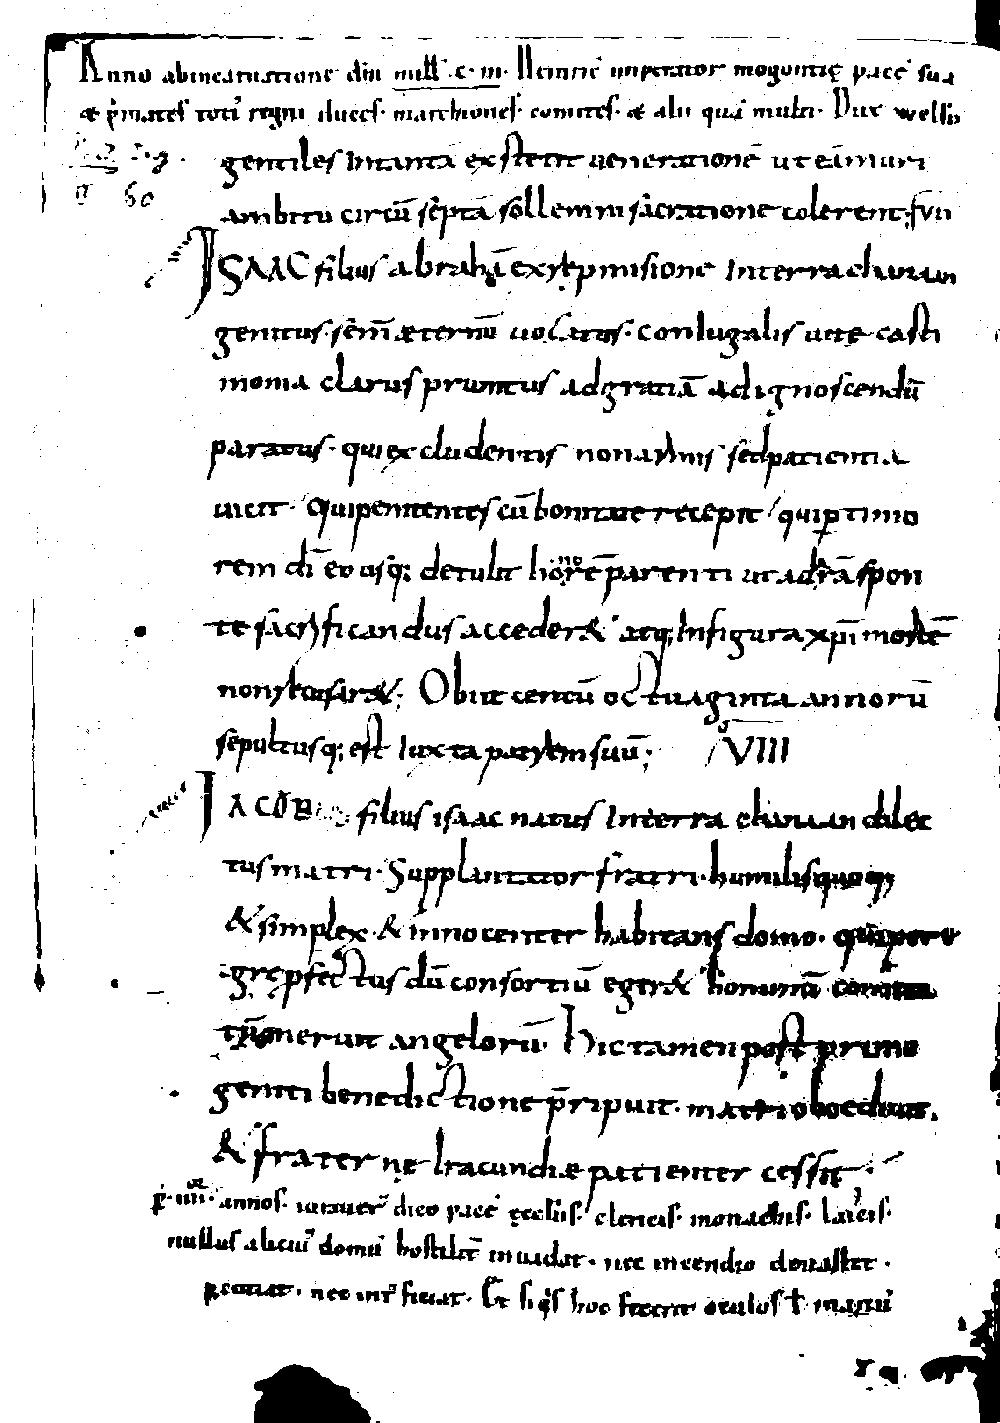 Anno abincarnatione dñi mill̃ · c · iii · Heinric̃ imperator moguntię pacẽ sua
& p̃mates toti᾿ regni duces · marchiones · comites · & alii quã multi · Dux welfo
gentiles Intanta exstetit ueneratione uteãmuri
ambitu circũ sẽpta sollemni sacratione colerent
ISAAC filius abrahã exrepmisione Interra chanaan
genitus · sem̃ æternũ uocatus · coniugalis uite casti
monia clarus pruntus adgratiã adignoscendũ
paratus · qui excludentis nonarmis sedpatientia
uicit · Quipenitentes cũ bonitate recepit quiptimo
rem dĩ eousq; detulit honorẽ parenti utadarã spon
te sacrificandus acceder& atq; Infigura xp̃i mortẽ
nonrecusar& ; Obiit centũ octuaginta annorũ
sepultusq; est Iuxta patrem suũ ; VIII
IACOB filius isaac natus Interra chanaan dilec
tus matri · Supplantator fratri · humilisquoq;
& simplex & innocenter habitans domo ·
grepfectus dũ consortiũ eger& hominũ
erunt angelorũ · Hic tamen post primo
geniti benedictione p̃ripuit · matri oboediuit ·
& fraternę Iracundiæ patienter cessit ·
p̃ · iiii · annos · iurauer̃ dico pacẽ ęcclĩis · clericis · monachis · laicis ·
nullus alicui᾿ domũ hostilit̃ inuadat · nec incendio deuastet ·
nec int̃ficiat · Et siq̃s hoc fecerit oculos ł manũ